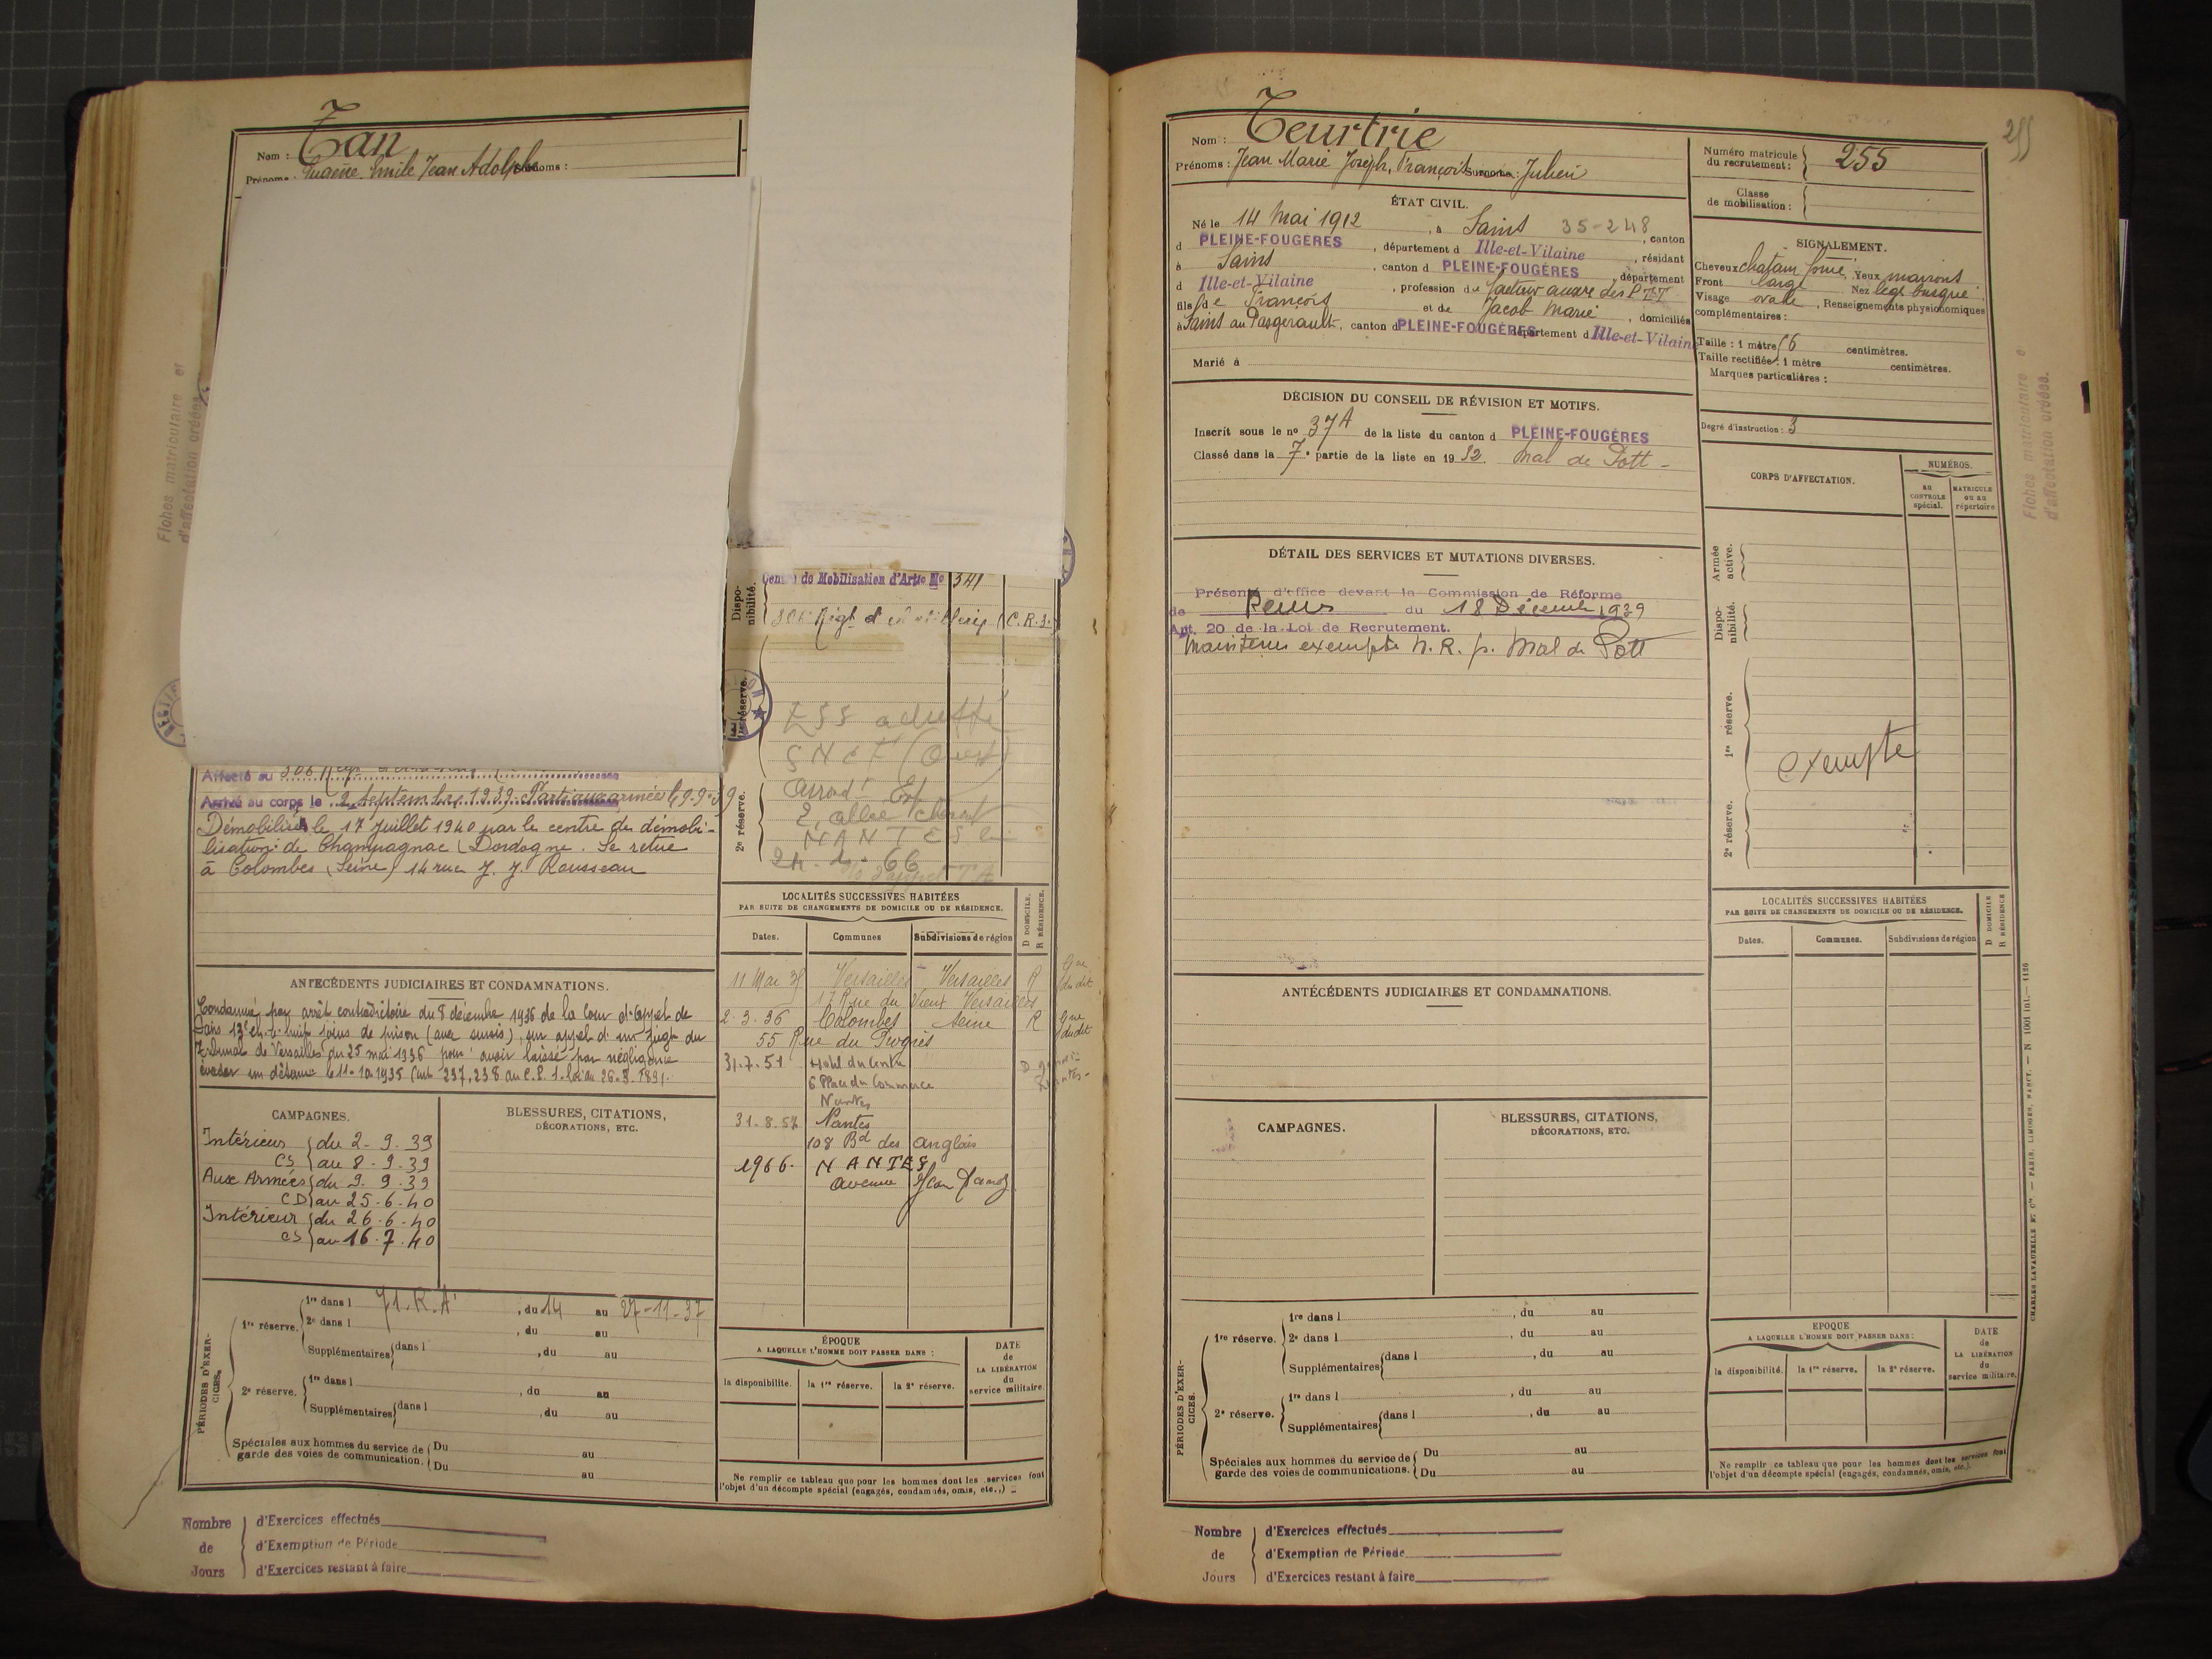 Tan
Nom :
Prénoms : Eugène Emile Jean Adolphe Surnoms :
Fiches matriculaire et
d'affectation créées.
Centre de Mobilisation d'Artie No 341
Dispo-
nibilité.
2e réserve.
(Ouest)
Arrodt Est
2, allée
NANTES
Affecté au 306
Arrivé au corps le 2 septembre 1939. Parti aux armées le 9.9.39
Démobilisé le 17 Juillet 1940 par le centre de démobi-
lisation de Champagnac (Dordogne. Se retire
à Colombes (Seine) 14 rue J. J. Rousseau
ANTÉCÉDENTS JUDICIAIRES ET CONDAMNATIONS.
Condamné par arrêt contradictoire du 8 décembre 1936 de la Cour d'Appel de
Paris 13e ch. à huit jours de prison (avec sursis), sur appel d'un jugt du
Tribunal de Versailles du 25 mai 1936 pour avoir laissé par négligence
évader un détenu le 11-10-1935 (art. 237, 238 du C.P. 1. loi du 26.3.1891.
CAMPAGNES.
Intérieur du 2-9.39
CS au 8-9.39
Aux Armées du 9.9.39
CD au 25.6.40
Intérieur du 26.6.40
CS au 16.7.40
BLESSURES, CITATIONS,
DÉCORATIONS, ETC.
LOCALITÉS SUCCESSIVES HABITÉES
PAR SUITE DE CHANGEMENTS DE DOMICILE OU DE RÉSIDENCE.
D DOMICILE.
R RÉSIDENCE.
Dates. Communes Subdivisions de région
11 Mai 35 Versailles Versailles R Gne
17 Rue du Vieux Versailles dudit
2.3.36 Colombes Seine R Gne
55 Rue du Progrès dudit
31.7.51 Hotel du Centre D
6 Place du Commerce
Nantes
31.8.57 Nantes
108 Bd des Anglais
1966. NANTES
avenue Jean
PÉRIODES D'EXER-
CICES.
1re réserve. 1re dans l 71.R.A , du 14 au 27-11-37
2e dans l , du au
Supplémentaires dans l , du au
2e réserve. 1re dans l , du au
Supplémentaires dans l , du au
Spéciales aux hommes du service de Du au
garde des voies de communication. Du au
ÉPOQUE
A LAQUELLE L'HOMME DOIT PASSER DANS :
la disponibilité. la 1re réserve. la 2e réserve.
DATE
de
LA LIBÉRATION
du
service militaire.
Ne remplir ce tableau que pour les hommes dont les services font
l'objet d'un décompte spécial (engagés, condamnés, omis, etc.,)
Nombre d'Exercices effectués
de d'Exemption de Période
Jours d'Exercices restant à faire
255
Nom : Teurtrie
Prénoms : Jean Marie Joseph, François Surnoms : Julien
Numéro matricule
du recrutement : 255
Classe
de mobilisation :
ÉTAT CIVIL.
Né le 14 Mai 1912 , à Sains 35-248 , canton
d PLEINE-FOUGÈRES , département d Ille-et-Vilaine , résidant
à Sains , canton d PLEINE-FOUGÈRES , département
d Ille-et-Vilaine , profession de facteur auxre des PTT
fils de François et de Jacob Marie , domiciliés
à Sains au Pasgérault , canton d PLEINE-FOUGÈRES département d Ille-et-Vilaine
Marié à
SIGNALEMENT.
Cheveux chatain foncé Yeux marrons
Front large Nez lége busqué
Visage ovale , Renseignements physionomiques
complémentaires :
Taille : 1 mètre 56 centimètres.
Taille rectifiée : 1 mètre centimètres.
Marques particulières :
Degré d'instruction : 3
DÉCISION DU CONSEIL DE RÉVISION ET MOTIFS.
Inscrit sous le no 37A de la liste du canton d PLEINE-FOUGÈRES
Classé dans la 7e partie de la liste en 1932. Mal de Pott -
DÉTAIL DES SERVICES ET MUTATIONS DIVERSES.
Présenté d'office devant la Commission de Réforme
de Rennes du 18 Décembre 1939
Art. 20 de la Loi de Recrutement.
Maintenu exempté N.R. p. Mal de Pott
CORPS D'AFFECTATION.
NUMÉROS.
au
CONTROLE
spécial.
MATRICULE
ou au
répertoire
Armée
active.
Dispo-
nibilité.
1re réserve.
exempté
2e réserve.
Fiches matriculaire e
d'affectation créées.
ANTÉCÉDENTS JUDICIAIRES ET CONDAMNATIONS.
CAMPAGNES.
BLESSURES, CITATIONS,
DÉCORATIONS, ETC.
LOCALITÉS SUCCESSIVES HABITÉES
PAR SUITE DE CHANGEMENTS DE DOMICILE OU DE RÉSIDENCE.
D DOMICILE
R RÉSIDENCE
Dates. Communes. Subdivisions de région
PÉRIODES D'EXER-
CICES.
1re réserve. 1re dans l , du au
2e dans l , du au
Supplémentaires dans l , du au
2e réserve. 1re dans l , du au
Supplémentaires dans l , du au
Spéciales aux hommes du service de Du au
garde des voies de communications. Du au
EPOQUE
A LAQUELLE L'HOMME DOIT PASSER DANS :
la disponibilité. la 1re réserve. la 2e réserve.
DATE
de
LA LIBÉRATION
du
service militaire.
Ne remplir ce tableau que pour les hommes dont les services font
l'objet d'un décompte spécial (engagés, condamnés, omis, etc.).
CHARLES LAVAUZELLE ET Cie. — PARIS, LIMOGES, NANCY.
Nombre d'Exercices effectués
de d'Exemption de Période
Jours d'Exercices restant à faire